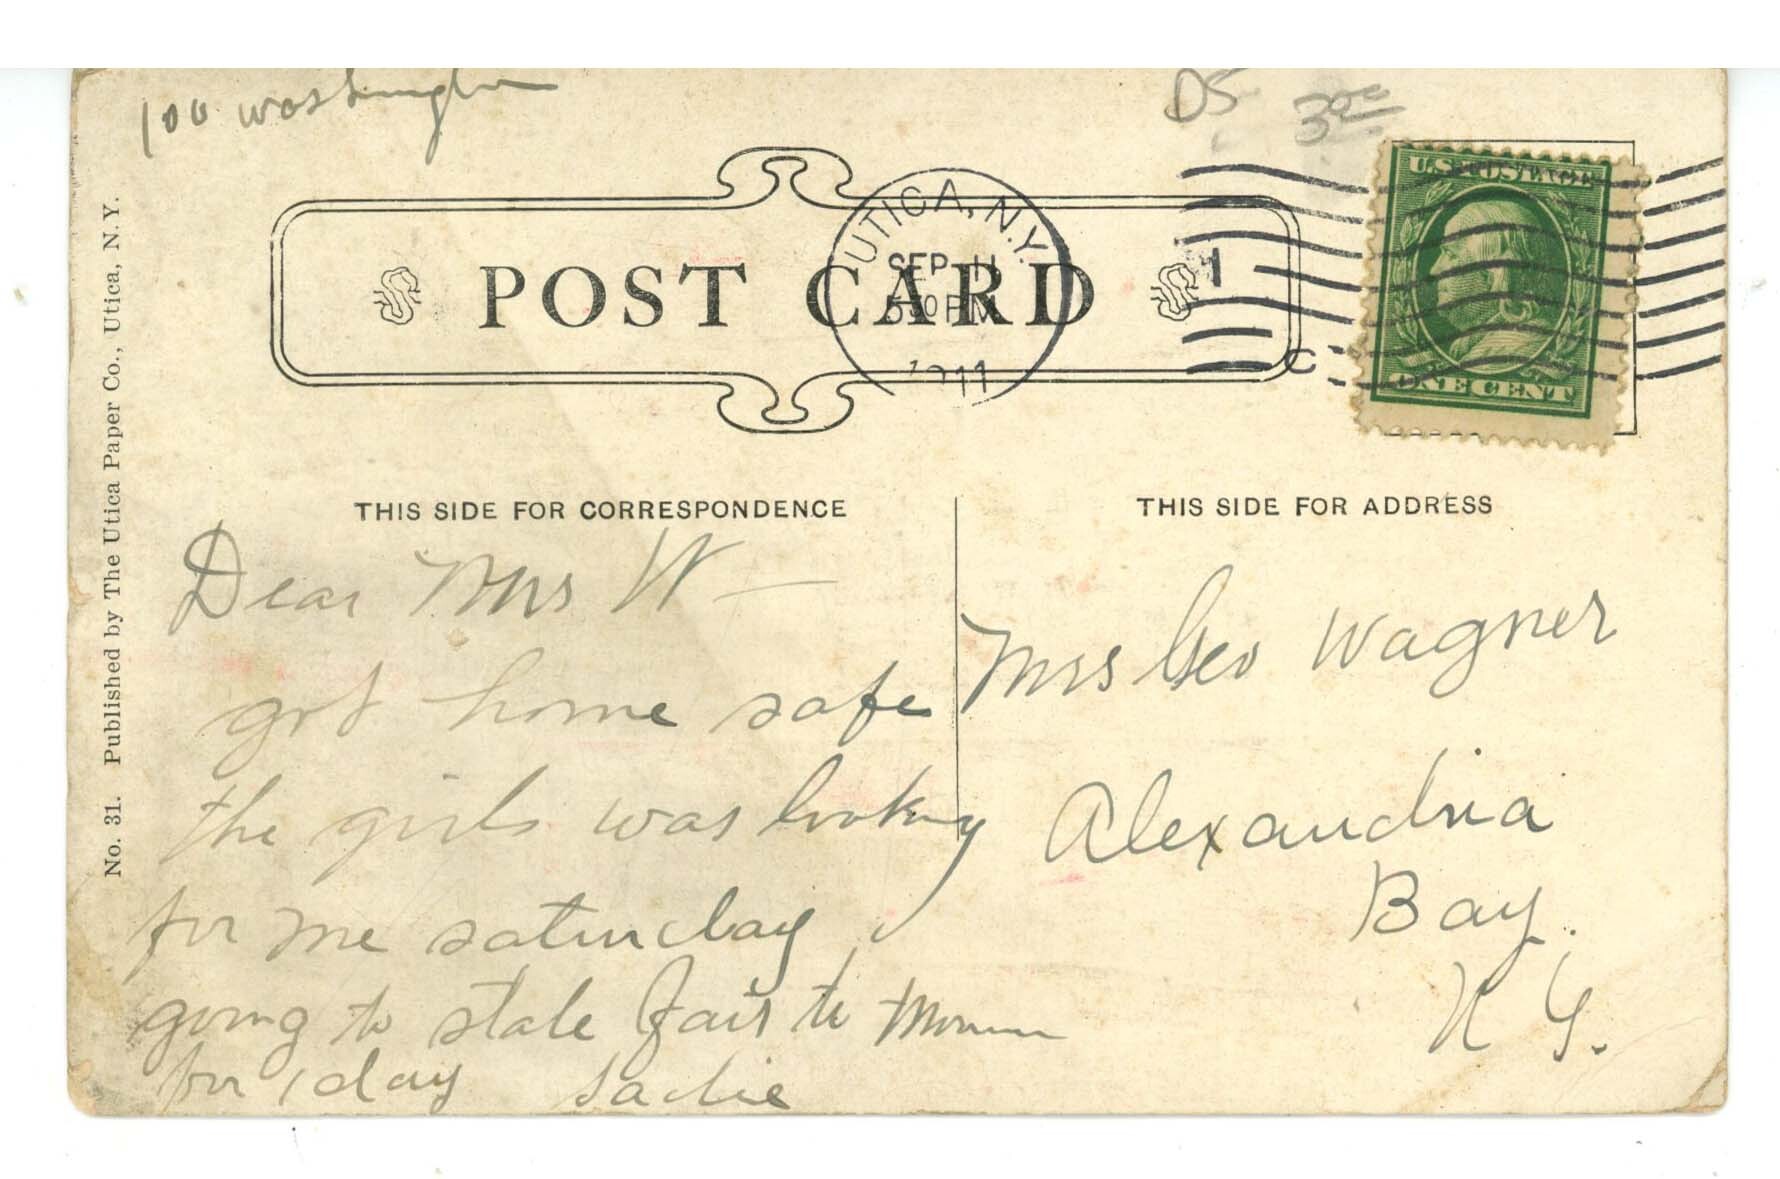 100 washington
DS 30c
U.S. POSTAGE
ONE CENT
UTICA, N.Y.
SEP 11
30 PM
1911
POST CARD
No. 31. Published by The Utica Paper Co., Utica, N.Y.
THIS SIDE FOR CORRESPONDENCE
Dear Mrs W—
got home safe
the girls was looking
for me saturday
going to state Fair to
for 1 day Sadie
THIS SIDE FOR ADDRESS
Mrs Geo Wagner
Alexandria
Bay.
N Y.